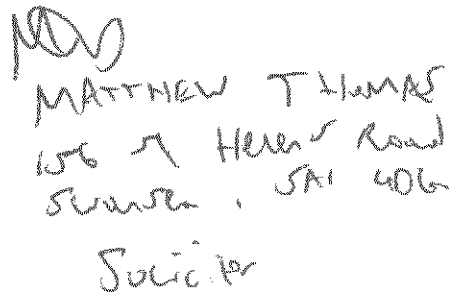 MATTHEW THOMAS
156 St Helen's Road
Swansea, SA1 4DG
Solicitor